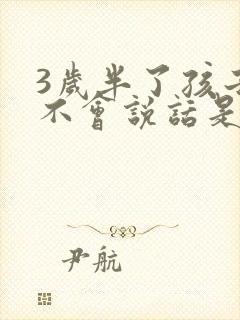 3歲半了孩子
不會說話是
尹航